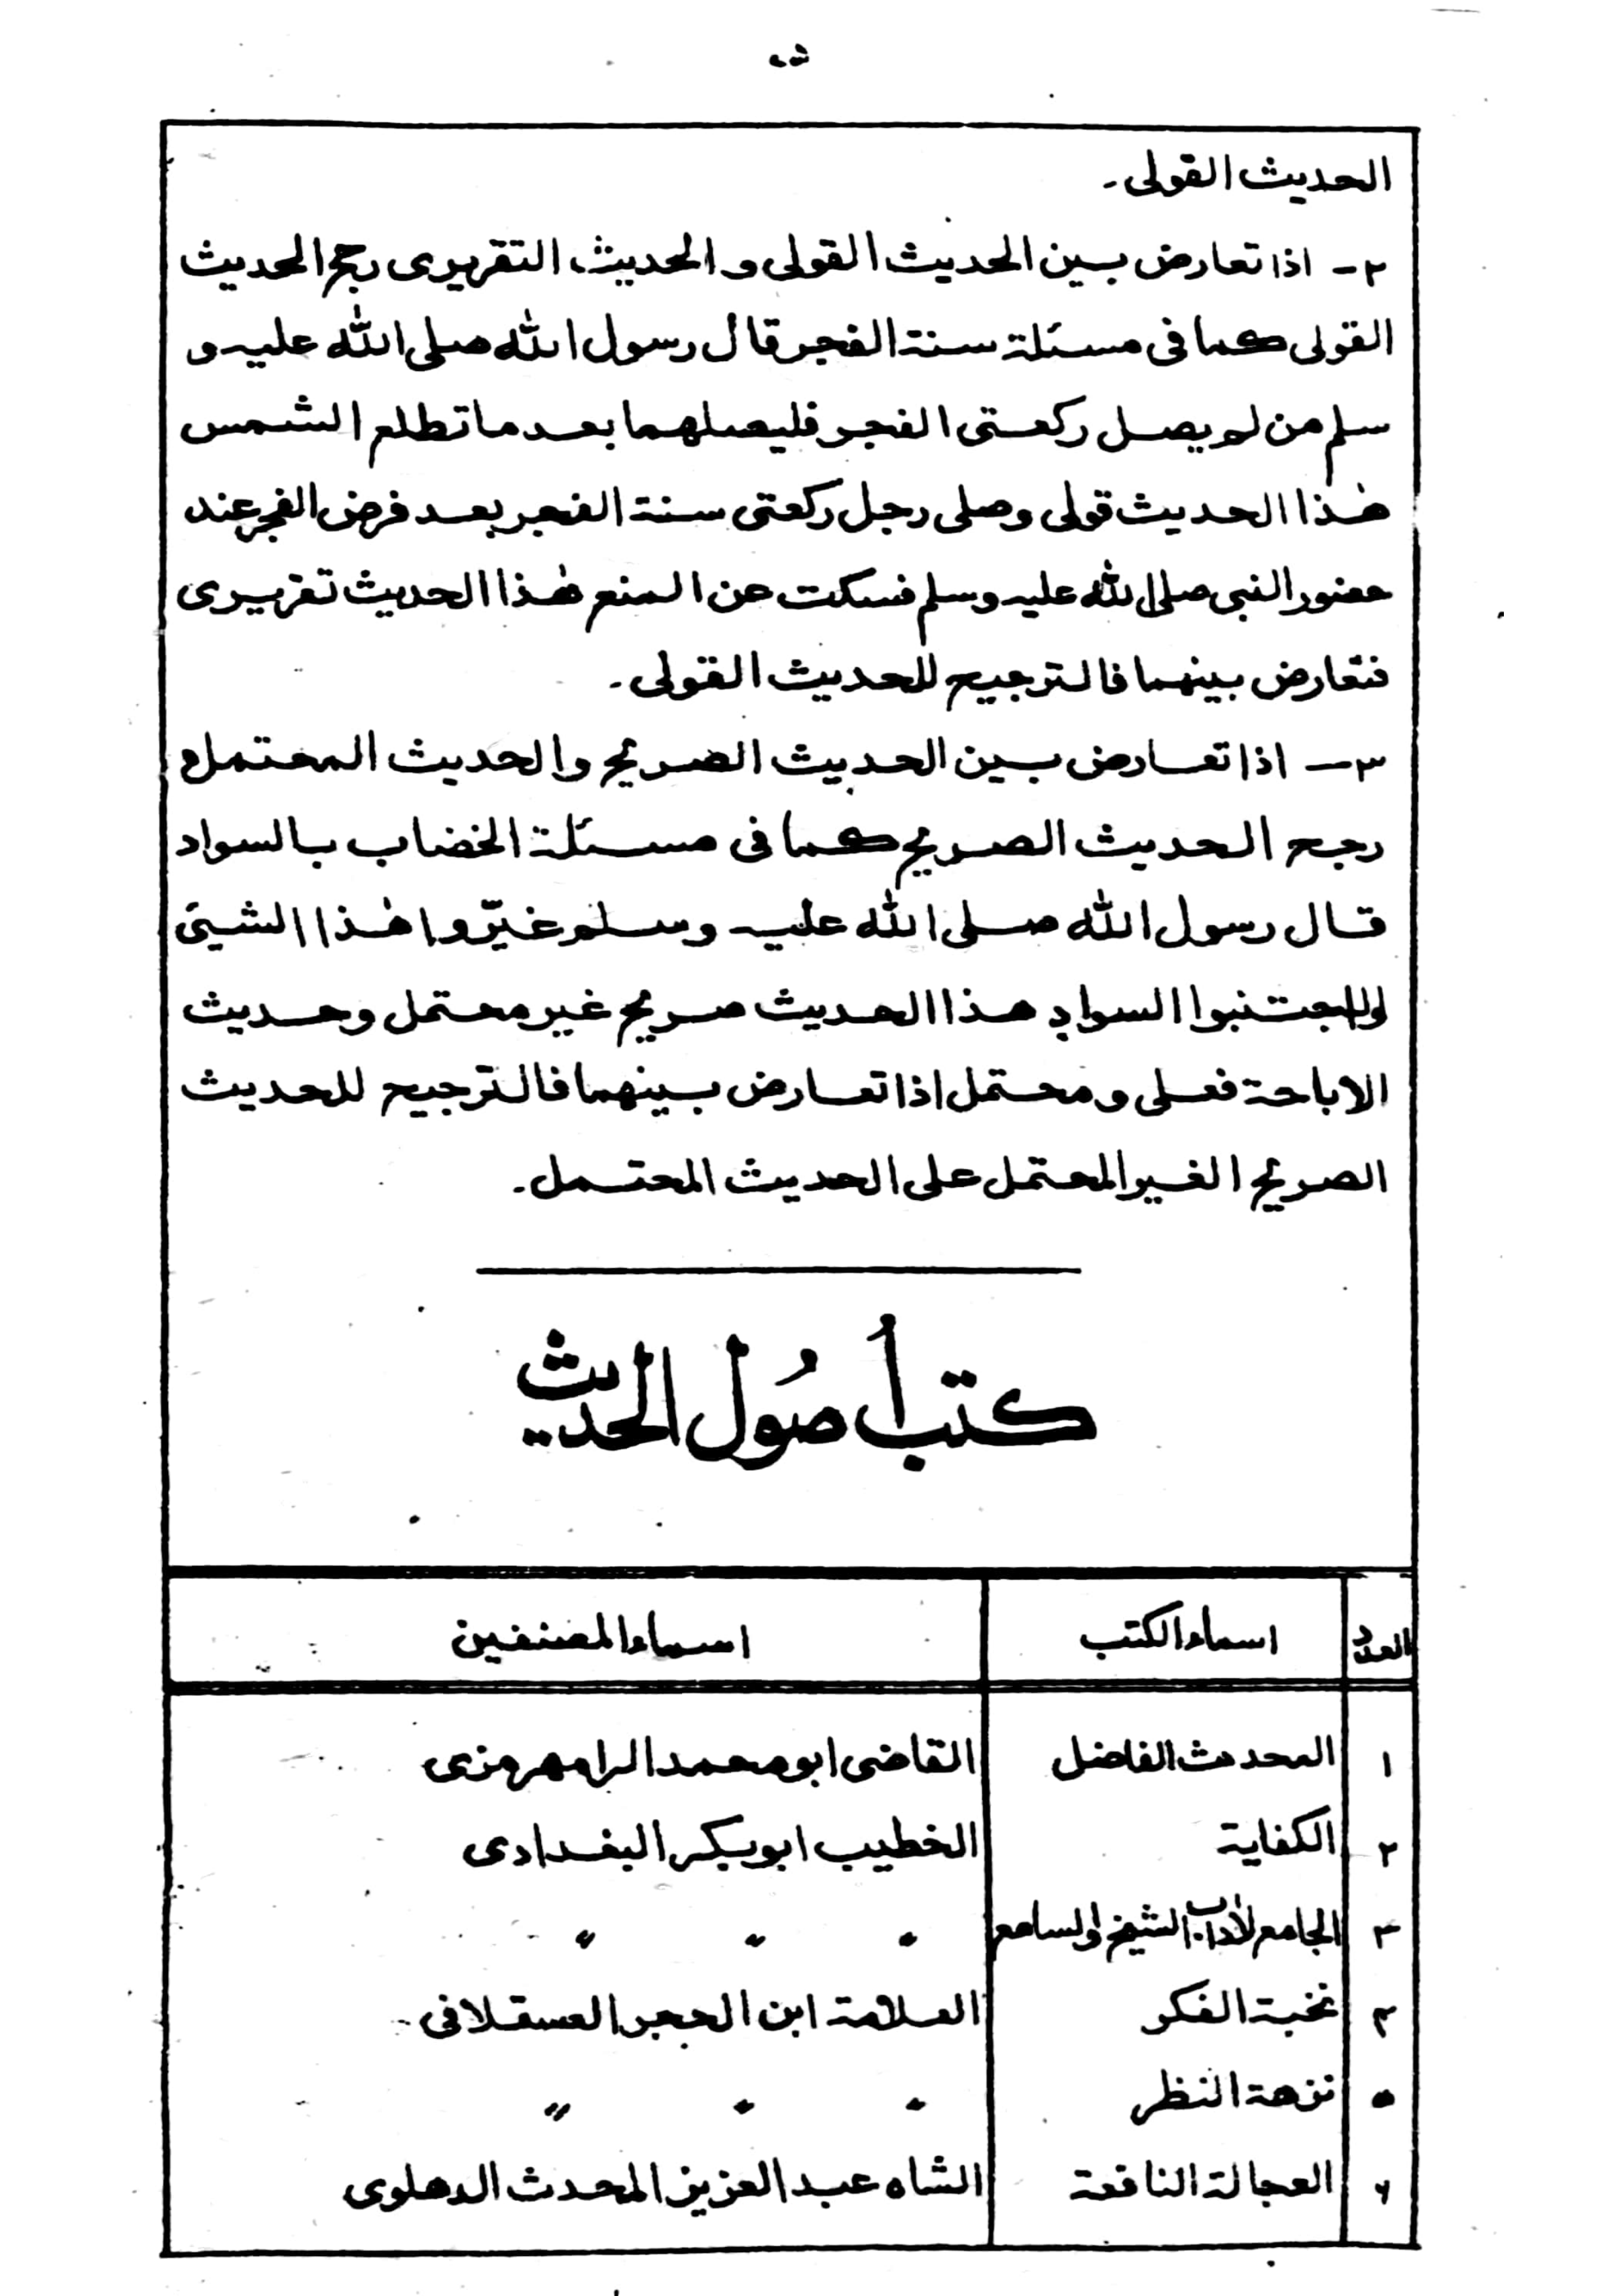 الحديث القولى۔
۲ـ اذا تعارض بين الحديث القولى و الحديث التقريرى رجح الحديث
القولى كما فى مسئلة سنة الفجر قال رسول الله صلى الله عليه و
سلم من لم يصل ركعتى الفجر فليصلهما بعد ما تطلع الشمس
هٰذا الحديث قولى وصلى رجل ركعتى سنة الفجر بعد فرض الفجر عند
حضور النبى صلى الله عليه وسلم فسكت عن المنع هٰذا الحديث تقريرى
فتعارض بينهما فالترجيح للحديث القولى۔
۳ـ اذا تعارض بين الحديث الصريح والحديث المحتمل
رجح الحديث الصريح كما فى مسئلة الخضاب بالسواد
قال رسول الله صلى الله عليه وسلم غيّروا هٰذا الشيئ
واجتنبوا السواد هذا الحديث صريح غير محتمل وحديث
الاباحة فعلى ومحتمل اذا تعارض بينهما فالترجيح للحديث
الصريح الغير المحتمل على الحديث المحتمل۔
كتب أصُول الحديث
العدد اسماء الكتب اسماء المصنفين
۱ المحدث الفاضل القاضى ابو محمد الرامهرمزى
۲ الكفاية الخطيب ابوبكر البغدادى
۳ الجامع لآداب الشيخ والسامع " " "
۴ نخبة الفكر العلامة ابن الحجر العسقلانى
۵ نزهة النظر " " "
۶ العجالة النافعة الشاه عبد العزيز المحدث الدهلوى